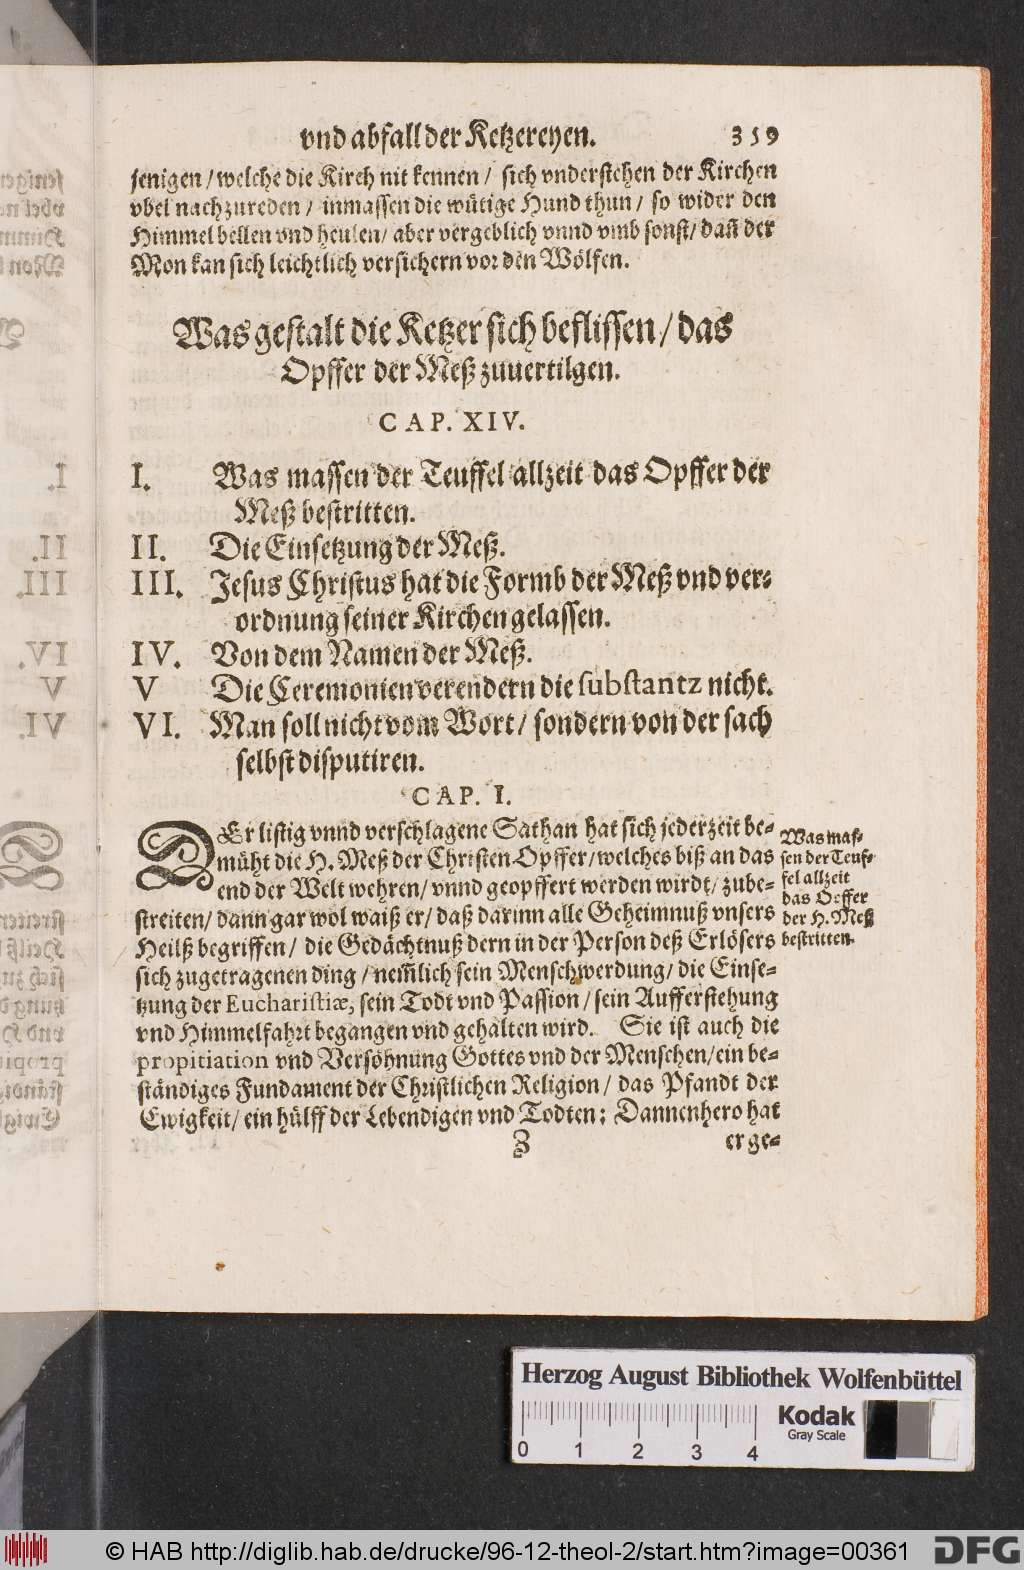 vnd abfall der Ketzereyen. 359
jenigen / welche die Kirch nit kennen / sich vnderstehen der Kirchen
vbel nachzureden / inmassen die wütige Hund thun / so wider den
Himmel bellen vnd heulen / aber vergeblich vnnd vmb sonst / dañ der
Mon kan sich leichtlich versichern vor den Wölfen.
Was gestalt die Ketzer sich beflissen / das
Opffer der Meß zuuertilgen.
CAP. XIV.
I. Was massen der Teuffel allzeit das Opffer der
Meß bestritten.
II. Die Einsetzung der Meß.
III. Jesus Christus hat die Formb der Meß vnd ver-
ordnung seiner Kirchen gelassen.
IV. Von dem Namen der Meß.
V Die Ceremonien verendern die substantz nicht.
VI. Man soll nicht vom Wort / sondern von der sach
selbst disputiren.
CAP. I.
DEr listig vnnd verschlagene Sathan hat sich jederzeit be-
müht die H. Meß der Christen Opffer / welches biß an das
end der Welt wehren / vnnd geopffert werden wirdt / zube-
streiten / dann gar wol waiß er / daß darinn alle Geheimnuß vnsers
Heilß begriffen / die Gedächtnuß dern in der Person deß Erlösers
sich zugetragenen ding / nem̃lich sein Menschwerdung / die Einse-
tzung der Eucharistiæ, sein Todt vnd Passion / sein Aufferstehung
vnd Himmelfahrt begangen vnd gehalten wird. Sie ist auch die
propitiation vnd Versöhnung Gottes vnd der Menschen / ein be-
ständiges Fundament der Christlichen Religion / das Pfandt der
Ewigkeit / ein hülff der Lebendigen vnd Todten: Dannenhero hat
Z er ge-
Was mas-
sen der Teuf-
fel allzeit
das Opffer
der H. Meß
bestritten.
Herzog August Bibliothek Wolfenbüttel
Kodak
Gray Scale
0 1 2 3 4
© HAB http://diglib.hab.de/drucke/96-12-theol-2/start.htm?image=00361
DFG